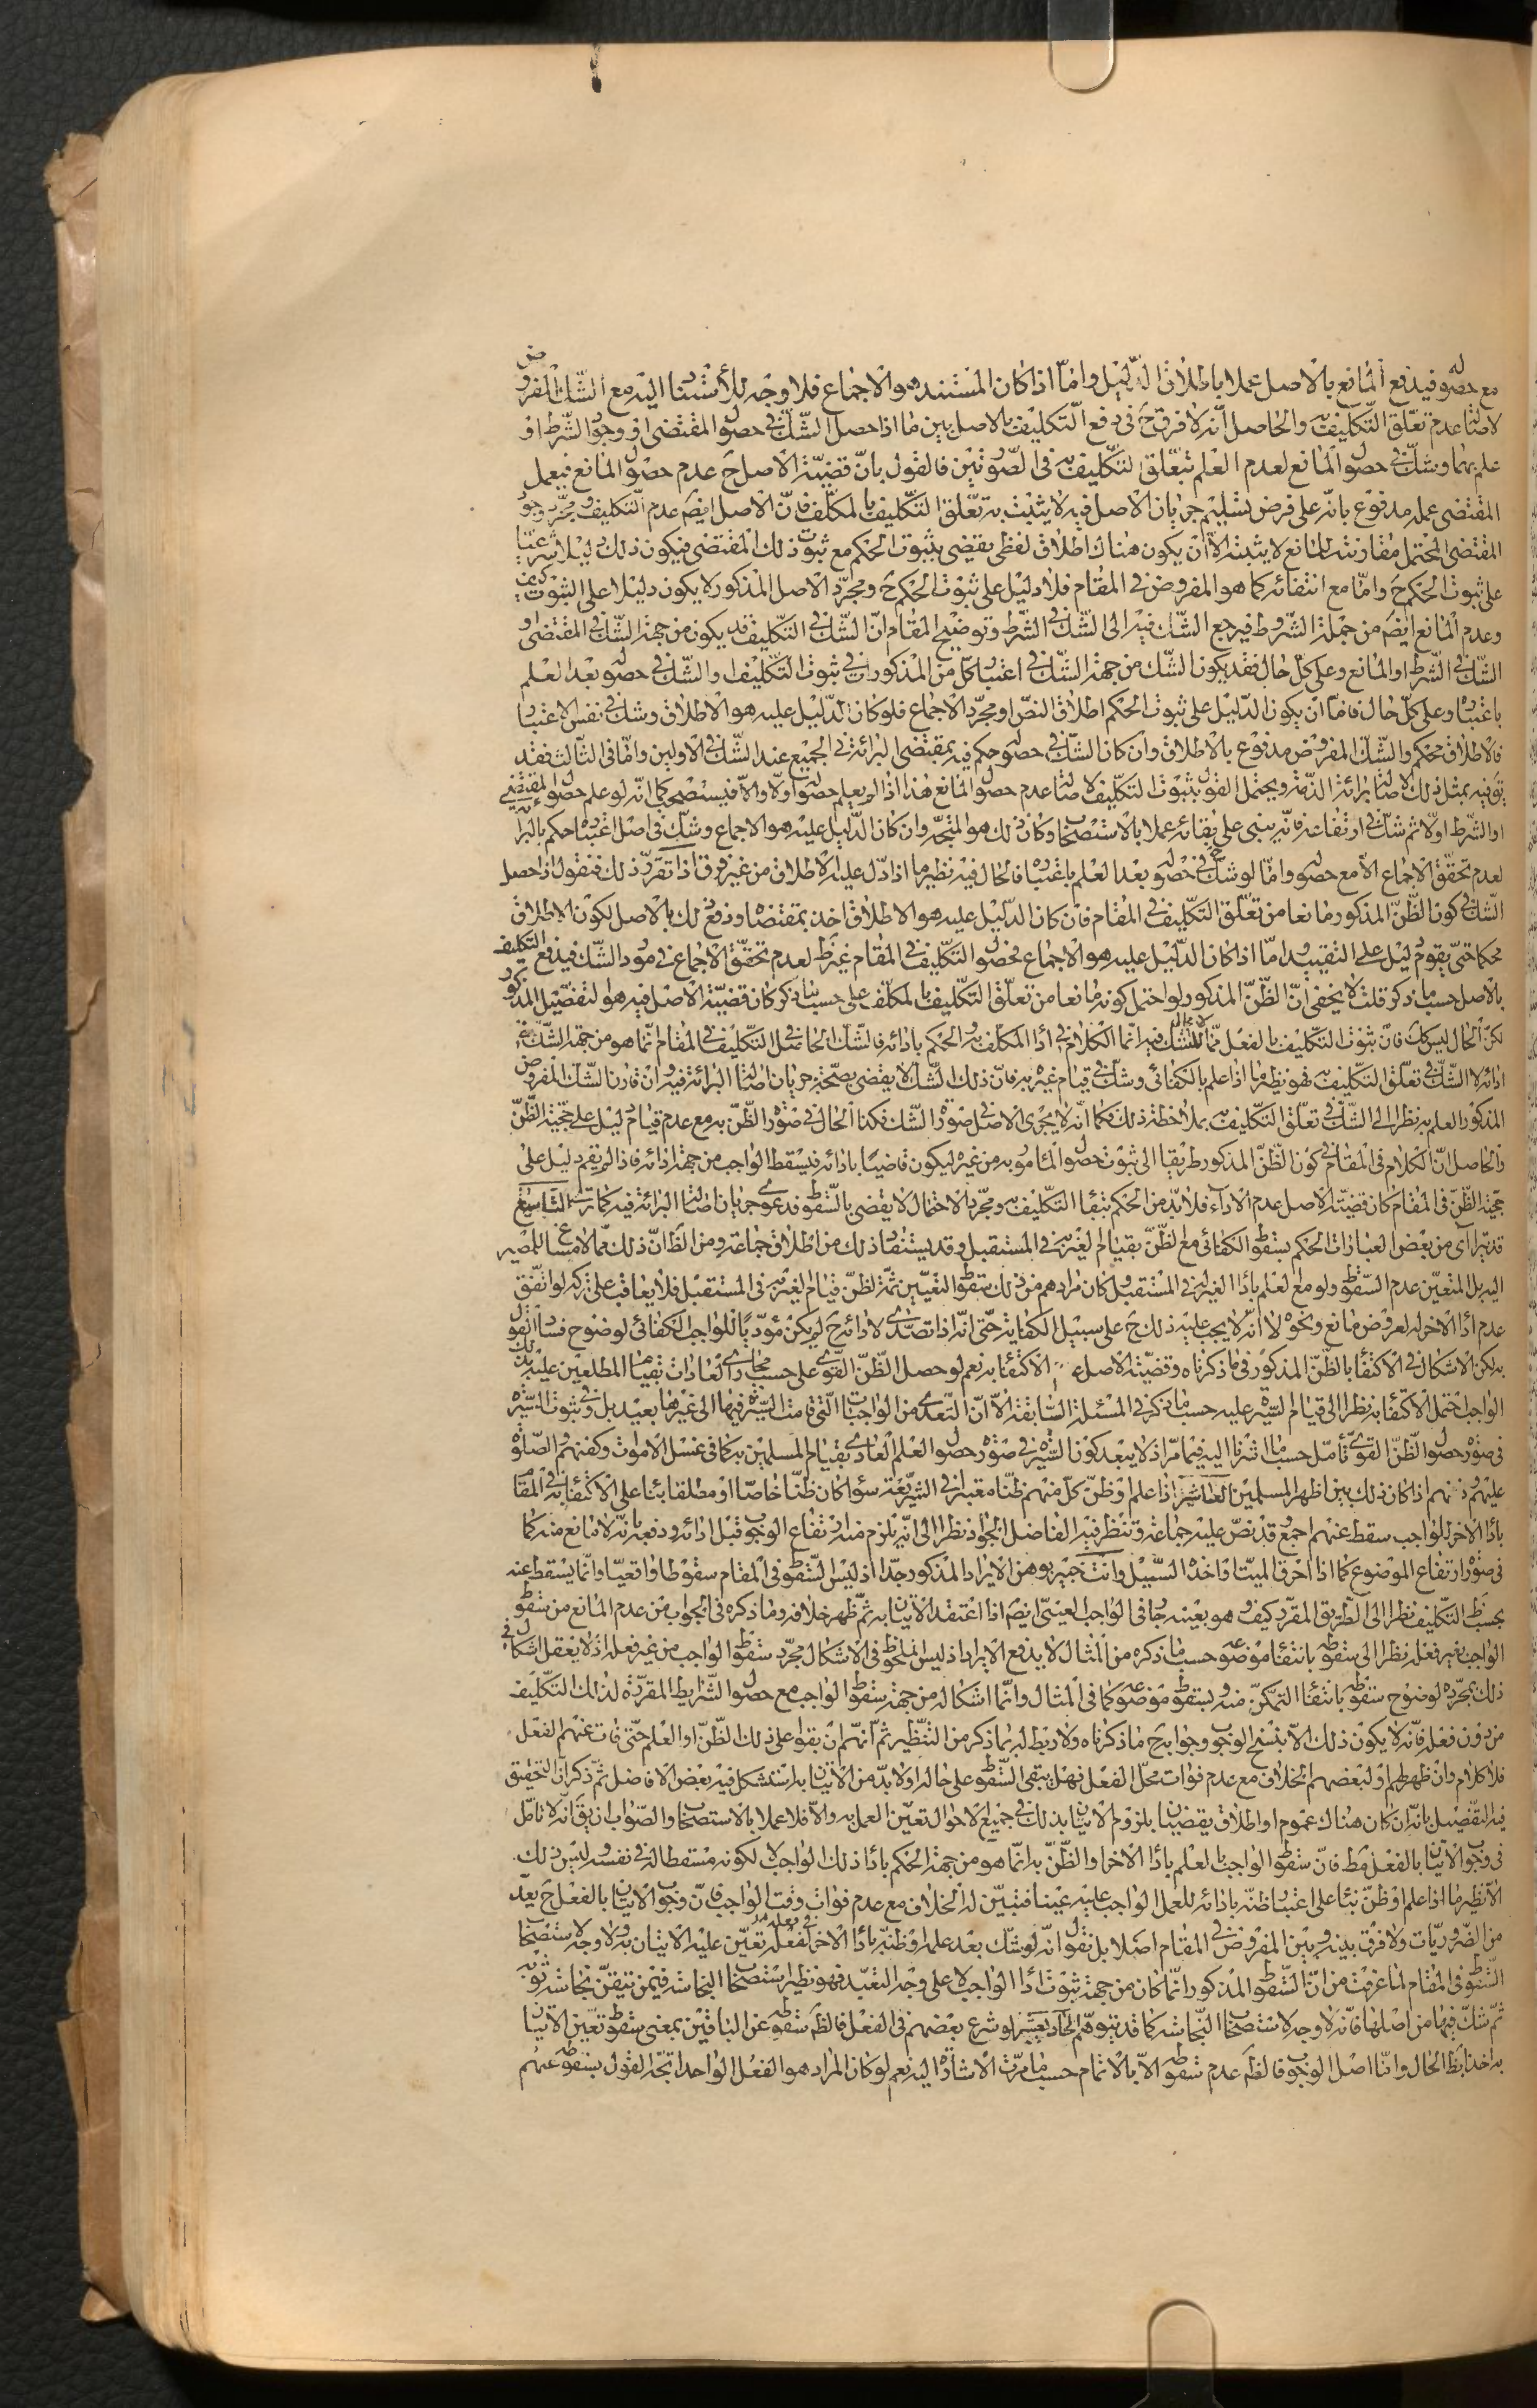 مع حصوله فيدفع المانع بالاصل عملا باطلاق الدليل واما اذا كان المستند هو الاجماع فلا وجه للاستناد اليه مع الشك المفروض
لاصالة عدم تعلق التكليف به والحاصل انه لا فرق ح في دفع التكليف بالاصل بين ما اذا حصل الشك في حصول المقتضى او وجود الشرط او
علم بهما وشك في حصول المانع لعدم العلم بتعلق التكليف به في الصورتين فالقول بان قضية الاصل ح عدم حصول المانع فيعمل
المقتضى عمله مدفوع بانه على فرض تسليم جريان الاصل فيه لا يثبت به تعلق التكليف بالمكلف فان الاصل ايضم عدم التكليف ومجرد وجود
المقتضى المحتمل مقارنته للمانع لا يثبته الا ان يكون هناك اطلاق لفظى يقضى بثبوت الحكم مع ثبوت ذلك المقتضى فيكون ذلك دليلا شرعيا
على ثبوت الحكم ح واما مع انتفائه كما هو المفروض في المقام فلا دليل على ثبوت الحكم ح ومجرد الاصل المذكور لا يكون دليلا على الثبوت كيف
وعدم المانع ايضم من جملة الشروط فيرجع الشك فيه الى الشك في الشرط وتوضيح المقام ان الشك في التكليف قد يكون من جهة الشك في المقتضى او
الشك في الشرط او المانع وعلى كل حال فقد يكون الشك من جهة الشك في اعتبار كل من المذكورات في ثبوت التكليف او الشك في حصوله بعد العلم
باعتباره وعلى كل حال فاما ان يكون الدليل على ثبوت الحكم اطلاق النص او مجرد الاجماع فلو كان الدليل عليه هو الاطلاق وشك في نفس الاعتبار
فالاطلاق محكم والشك المفروض مدفوع بالاطلاق وان كان الشك في حصوله حكم فيه بمقتضى البرائة في الجميع عند الشك في الاولين واما في الثالث فقد
يق فيه بمثل ذلك لاصالة برائة الذمة ويحتمل القول بثبوت التكليف لاصالة عدم حصول المانع هذا اذا لم يعلم حصوله اولا والا فيستصحب كما انه لو علم حصول المقتضى
او الشرط اولا ثم شك في ارتفاعه فانه يبنى على بقائه عملا بالاستصحاب وكان ذلك هو المتجه وان كان الدليل عليه هو الاجماع وشك في اصل اعتباره حكم بالبرائة
لعدم تحقق الاجماع الا مع حصوله واما لو شك في حصوله بعد العلم باعتباره فالحال فيه نظير ما اذا دل عليه الاطلاق من غير فرق اذا تقرر ذلك فنقول اذا حصل
الشك في كون الظن المذكور مانعا من تعلق التكليف في المقام فان كان الدليل عليه هو الاطلاق اخذ بمقتضاه ودفع ذلك بالاصل لكون الاطلاق
محكما حتى يقوم دليل على التقييد اما اذا كان الدليل عليه هو الاجماع فحصول التكليف في المقام غير ظ لعدم تحقق الاجماع في مورد الشك فيدفع التكليف
بالاصل حسب ما ذكر قلت لا يخفى ان الظن المذكور ولو احتمل كونه مانعا من تعلق التكليف بالمكلف على حسب ما ذكر كان قضية الاصل فيه هو التفصيل المذكور
لكن الحال ليس كك فان ثبوت التكليف بالفعل مما لا مجال للشك فيه انما الكلام في اداء المكلف به والحكم بادائه فالشك الحاصل في التكليف في المقام انما هو من جهة الشك في
ادائه لا الشك في تعلق التكليف به فهو نظير ما اذا علم بالكفائى وشك في قيام غيره به فان ذلك الشك لا يقضى بصحة جريان اصالة البرائة فيه وان قارن الشك المفروض
المذكور العلم به نظرا الى الشك في تعلق التكليف به بملاحظة ذلك فكما انه لا يجرى الاصل في صورة الشك فكذا الحال في صورة الظن به مع عدم قيام دليل على حجية الظن
والحاصل ان الكلام في المقام في كون الظن المذكور طريقا الى ثبوت حصول المامور به من غيره ليكون قاضيا بادائه فيسقط الواجب من جهة ادائه فاذا لم يقم دليل على
حجية الظن في المقام كان قضية الاصل عدم الاداء فلا بد من الحكم ببقاء التكليف به ومجرد الاحتمال لا يقضى بالسقوط فدعوى جريان اصالة البرائة فيه كما ترى التاسع
قد يترآى من بعض العبارات الحكم بسقوط الكفائى مع الظن بقيام الغير به في المستقبل وقد يستفاد ذلك من اطلاق جماعة ومن الظ ان ذلك مما لا مساغ للمصير
اليه بل المتعين عدم السقوط ولو مع العلم باداء الغير له في المستقبل وكان مرادهم من ذلك سقوط التعيين ثمة لظن قيام الغير به في المستقبل فلا يعاقب على تركه لو اتفق
عدم اداء الاخر له لعروض مانع ونحوه لا انه لا يجب عليه ذلك ح على سبيل الكفاية حتى انه اذا تصدى لادائه ح لم يكن مؤديا للواجب الكفائى لوضوح فساد القول
به لكن الاشكال في الاكتفاء بالظن المذكور في ما ذكرناه وقضية الاصل عدم الاكتفاء به نعم لو حصل الظن القوى على حسب مجارى العادات بقيام المطلعين عليه بذلك
الواجب احتمل الاكتفاء به نظرا الى قيام السيرة عليه حسب ما ذكر في المسئلة السابقة الا ان التعدى من الواجبات التى قامت السيرة فيها الى غيرها بعيد بل في ثبوت السيرة
في صورة حصول الظن القوى تأمل حسب ما اشرنا اليه فيما مر اذ لا يبعد كون السيرة في صورة حصول العلم العادى بقيام المسلمين به كما في غسل الاموات وكفنهم والصلوة
عليهم ودفنهم اذا كان ذلك بين اظهر المسلمين العاشر اذا علم او ظن كل منهم ظنا معتبرا في الشريعة سواء كان ظنا خاصا او مطلقا بناء على الاكتفاء به في المقام
باداء الاخر للواجب سقط عنهم اجمع وقد نص عليه جماعة وتنظر فيه الفاضل الجواد نظرا الى انه يلزم منه ارتفاع الوجوب قبل ادائه ودفعه بانه لا مانع منه كما
في صورة ارتفاع الموضوع كما اذا احرق الميت او اخذه السيل وانت خبير بوهن الايراد المذكور جدا اذ ليس السقوط في المقام سقوطا واقعيا وانما يسقط عنه
بحسب ظ التكليف نظرا الى الطريق المقرر كيف وهو بعينه جار في الواجب العينى ايضم اذا اعتقد الاتيان به ثم ظهر خلافه وما ذكره في الجواب من عدم المانع من سقوط
الواجب بغير فعله نظرا الى سقوطه بانتفاء موضوعه حسب ما ذكره من المثال لا يدفع الايراد اذ ليس الملحوظ في الاشكال مجرد سقوط الواجب من غير فعله اذ لا يعقل اشكال في
ذلك بمجرده لوضوح سقوطه بانتفاء التمكن منه وبسقوط موضوعه كما في المثال وانما اشكاله من جهة سقوط الواجب مع حصول الشرايط المقررة لذلك التكليف
من دون فعله فانه لا يكون ذلك الا بنسخ الوجوب وجوابه ح ما ذكرناه ولا ربط له بما ذكر من التنظير ثم انهم ان بقوا على ذلك الظن او العلم حتى فات عنهم الفعل
فلا كلام وان ظهر لهم او لبعضهم الخلاف مع عدم فوات محل الفعل فهل يبقى السقوط على حاله او لا بد من الاتيان به استشكل فيه بعض الافاضل ثم ذكر ان التحقيق
فيه التفصيل بانه ان كان هناك عموم او اطلاق يقضيان بلزوم الاتيان بذلك في جميع الاحوال تعين العمل به والا فلا عملا بالاستصحاب والصواب ان يق انه لا تامل
في وجوب الاتيان بالفعل مط فان سقوط الواجب بالعلم باداء الاخر او الظن به انما هو من جهة الحكم باداء ذلك الواجب لا لكونه مسقطا له في نفسه وليس ذلك
الا نظير ما اذا علم او ظن بناء على اعتبار ظنه بادائه للعمل الواجب عليه عينا فتبين له الخلاف مع عدم فوات وقت الواجب فان وجوب الاتيان بالفعل ح يعد
من الضروريات ولا فرق بينه وبين المفروض في المقام اصلا بل نقول انه لو شك بعد علمه او ظنه باداء الاخر في فعله له تعين عليه الاتيان به ولا وجه لاستصحاب
السقوط في المقام لما عرفت من ان السقوط المذكور انما كان من جهة ثبوت اداء الواجب لا على وجه التعبد فهو نظير استصحاب النجاسة فيمن تيقن نجاسة ثوبه
ثم شك فيها من اصلها فانه لا وجه لاستصحاب النجاسة كما قد يتوهم الحاديعشر لو شرع بعضهم في الفعل فالظ سقوطه عن الباقين بمعنى سقوط تعين الاتيان
به اخذا بظ الحال واما اصل الوجوب فالظ عدم سقوطه الا بالاتمام حسب ما مرت الاشارة اليه نعم لو كان المراد هو الفعل الواحد اتجه القول بسقوطه عنهم